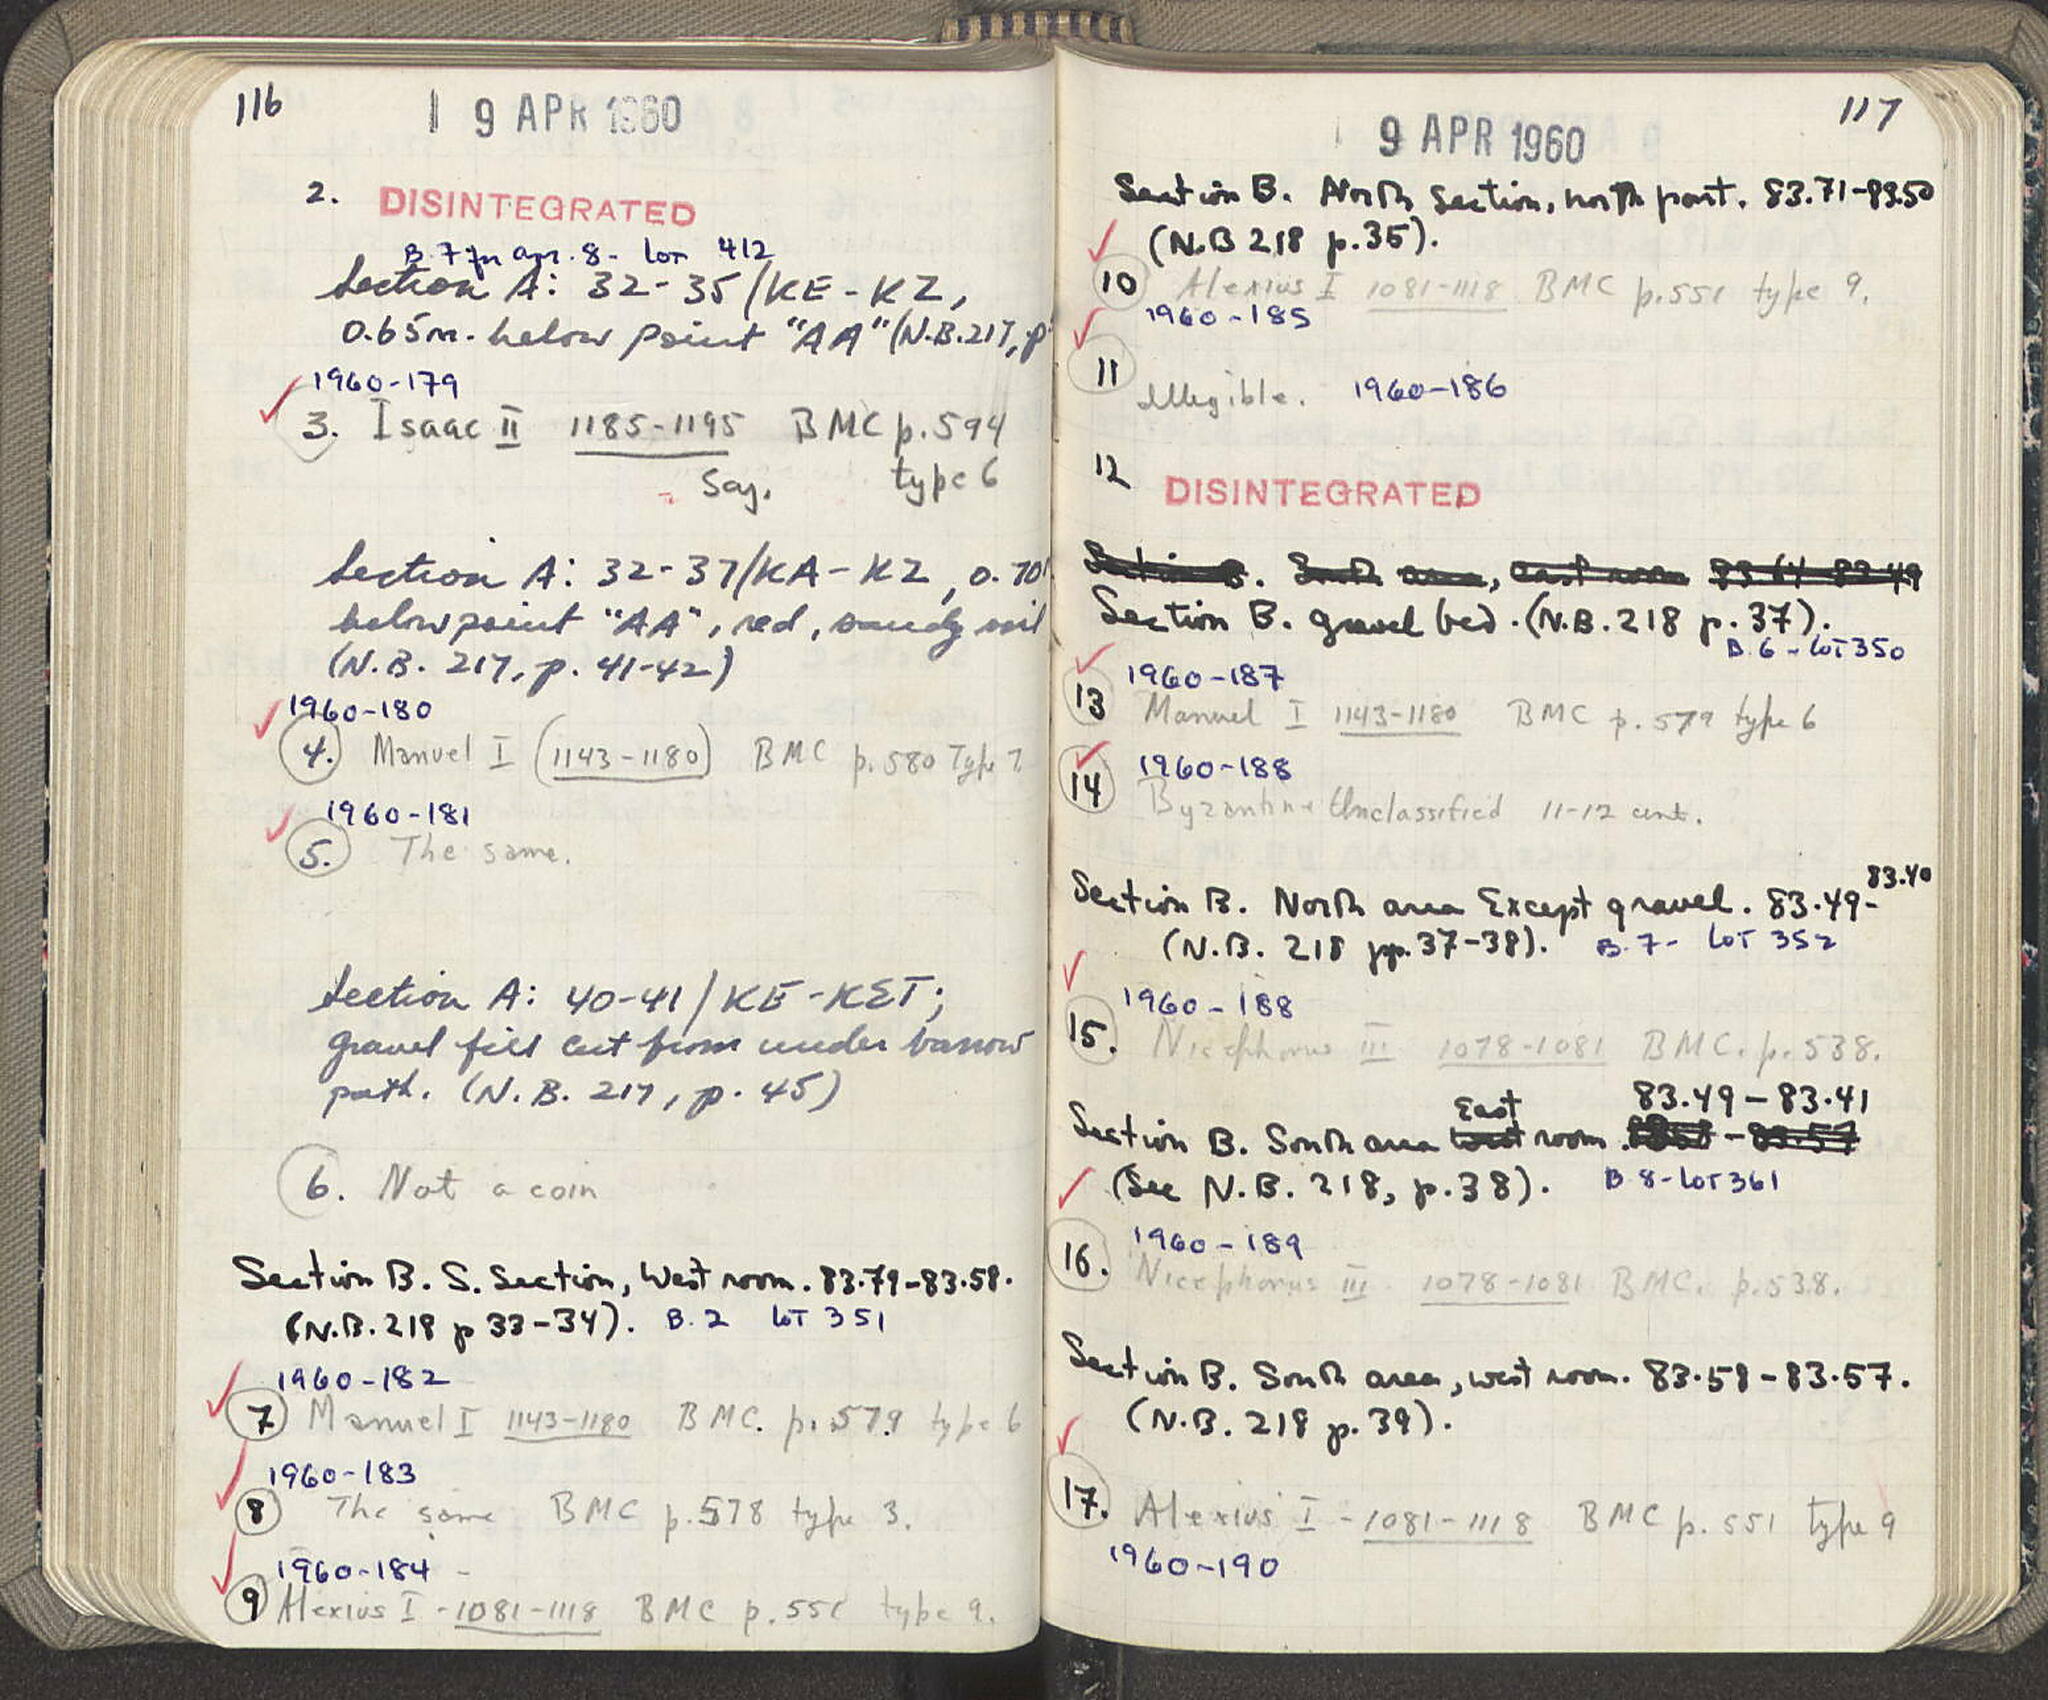 116
19 APR 1960
2. DISINTEGRATED
B. 7 for apr. 8 - lot 412
Section A: 32-35/KE-KZ,
0.65m. below point "AA" (N.B. 217, p
1960-179
3. Isaac II 1185-1195 BMC p. 594
Say. type 6
Section A: 32-37/KA-KZ, 0.70
below point "AA", red, sandy soil
(N.B. 217, p. 41-42)
1960-180
4. Manuel I (1143-1180) BMC p. 580 Type 7.
1960-181
5. The same.
Section A: 40-41/KE-KΣT;
gravel fill cut from under barrow
path. (N.B. 217, p. 45)
6. Not a coin
Section B. S. Section, West room. 83.79-83.58.
(N.B. 218 p 33-34). B.2 LOT 351
1960-182
7 Manuel I 1143-1180 BMC. p. 579 type 6
1960-183
8 The same BMC p. 578 type 3.
1960-184 -
9 Alexius I - 1081-1118 BMC p. 551 type 9.
117
9 APR 1960
Section B. North Section, north part. 83.71-83.50
(N.B 218 p. 35).
10 Alexius I 1081-1118 BMC p. 551 type 9.
1960-185
11 illegible. 1960-186
12 DISINTEGRATED
Section B. South area, east room 83.64-83.49
Section B. gravel bed. (N.B. 218 p. 37).
B. 6 - LOT 350
1960-187
13 Manuel I 1143-1180 BMC p. 579 type 6
1960-188
14 Byzantine Unclassified 11-12 cent.
Section B. North area Except gravel. 83.49-83.40
(N.B. 218 pp. 37-38). B. 7 - LOT 352
1960-188
15. Nicephorus III 1078-1081 BMC. p. 538.
East 83.49-83.41
Section B. South area room.
(See N.B. 218, p. 38). B 8 - LOT 361
1960-189
16. Nicephorus III 1078-1081 BMC. p. 538.
Section B. South area, west room. 83.58-83.57.
(N.B. 218 p. 39).
17. Alexius I - 1081-1118 BMC p. 551 type 9
1960-190